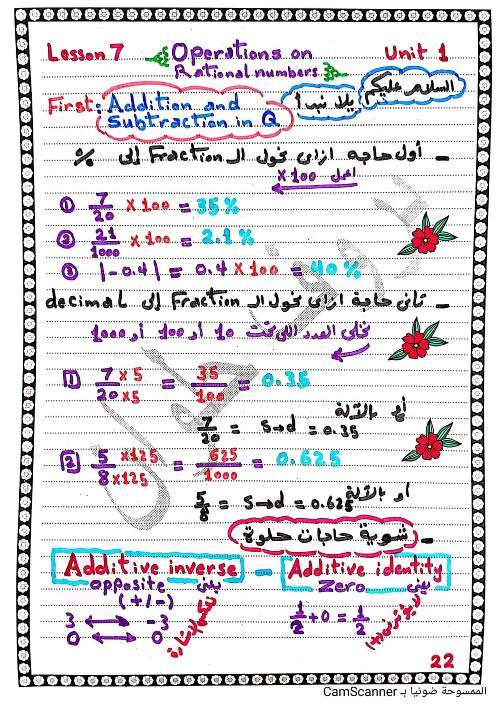 Lesson 7 Operations on Rational numbers Unit 1
السلام عليكم
يلا نبدأ
First: Addition and Subtraction in Q
- أول حاجه ازاى نحول الـ Fraction إلى %
اعمل 100 ×
① 7/20 × 100 = 35%
② 21/1000 × 100 = 2.1%
③ |-0.4| = 0.4 × 100 = 40%
- تانى حاجة ازاى نحول الـ Fraction إلى decimal
نخلى العدد اللى تحت 10 أو 100 أو 1000
1 7×5/20×5 = 35/100 = 0.35
أو بالآلة
7/20 = S→d = 0.35
2 5×125/8×125 = 625/1000 = 0.625
أو بالآلة
5/8 = S→d = 0.625
- شوية حاجات حلوة
Additive inverse - Additive identity
يعنى opposite
(+/-)
3 ↔ -3
0 ↔ 0
يعنى Zero
1/2 + 0 = 1/2
22
الممسوحة ضوئيا بـ CamScanner